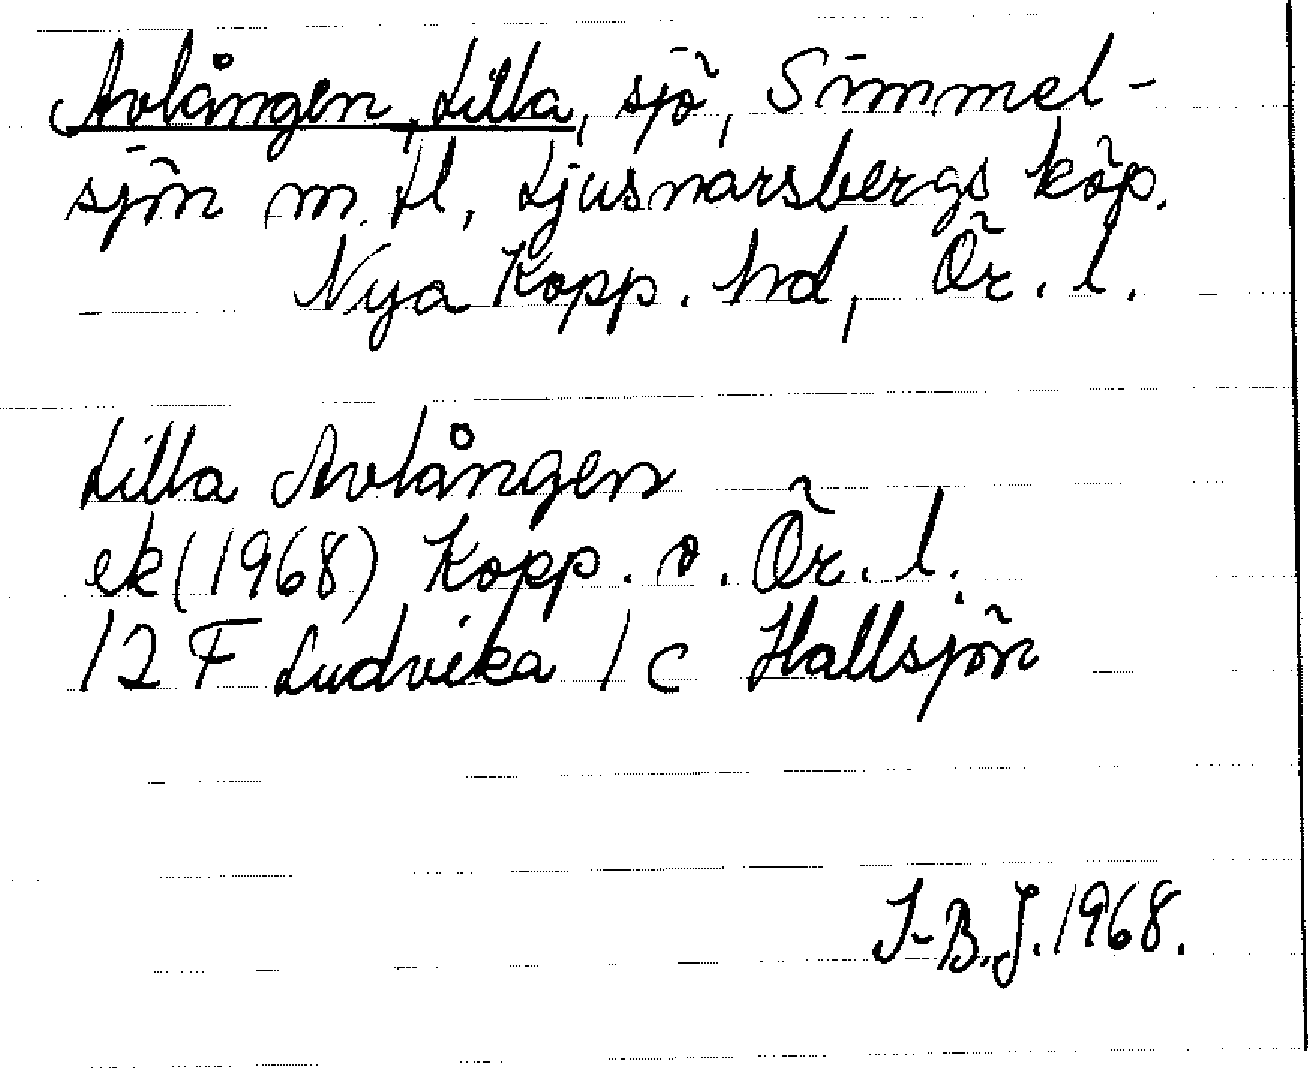 Avlången, Lilla, sjö, Simmel-
sjön m. fl, Ljusnarsbergs köp.
Nya Kopp. hd, Ör. l.
Lilla Avlången
ek (1968) Kopp. o. Ör. l.
12 F Ludvika 1 c Hallsjön
I-B.J. 1968.